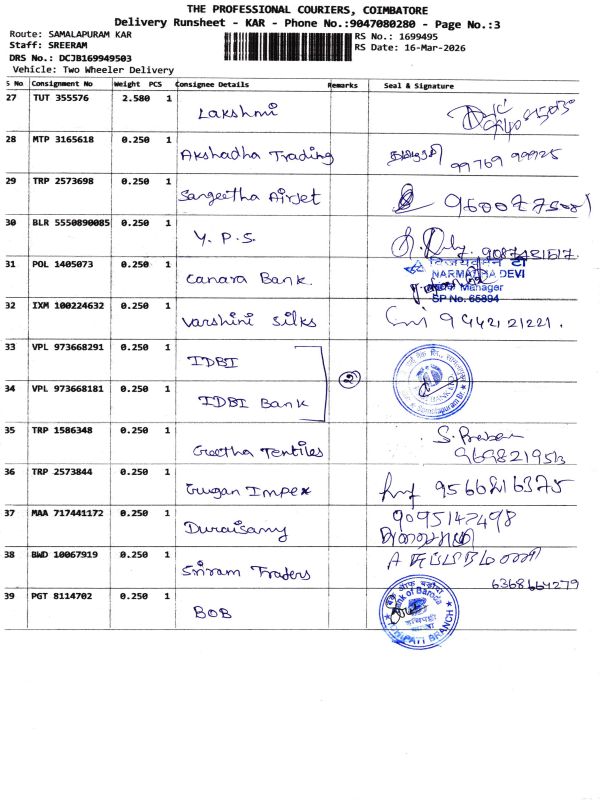 THE PROFESSIONAL COURIERS, COIMBATORE
Delivery Runsheet - KAR - Phone No.:9047080280 - Page No.:3
Route: SAMALAPURAM KAR
RS No.: 1699495
Staff: SREERAM
RS Date: 16-Mar-2026
DRS No.: DCJB169949503
Vehicle: Two Wheeler Delivery
S No Consignment No Weight PCS Consignee Details Remarks Seal & Signature
27 TUT 355576 2.580 1 Lakshmi
28 MTP 3165618 0.250 1 Akshadha Trading 99769 99925
29 TRP 2573698 0.250 1 Sangeetha Airjet
30 BLR 5550890085 0.250 1 Y. P. S.
31 POL 1405073 0.250 1 Canara Bank. NARMATHA DEVI
Manager
SP No. 65894
32 IXM 100224632 0.250 1 Varshini Silks 9442121221.
33 VPL 973668291 0.250 1 IDBI
2
34 VPL 973668181 0.250 1 IDBI Bank
35 TRP 1586348 0.250 1 Geetha Textiles
36 TRP 2573844 0.250 1 Gugan Impex 9566816375
37 MAA 717441172 0.250 1 Duraisamy 9095147498
38 BWD 10067919 0.250 1 Sriram Traders
6368664279
39 PGT 8114702 0.250 1 BOB Bank of Baroda